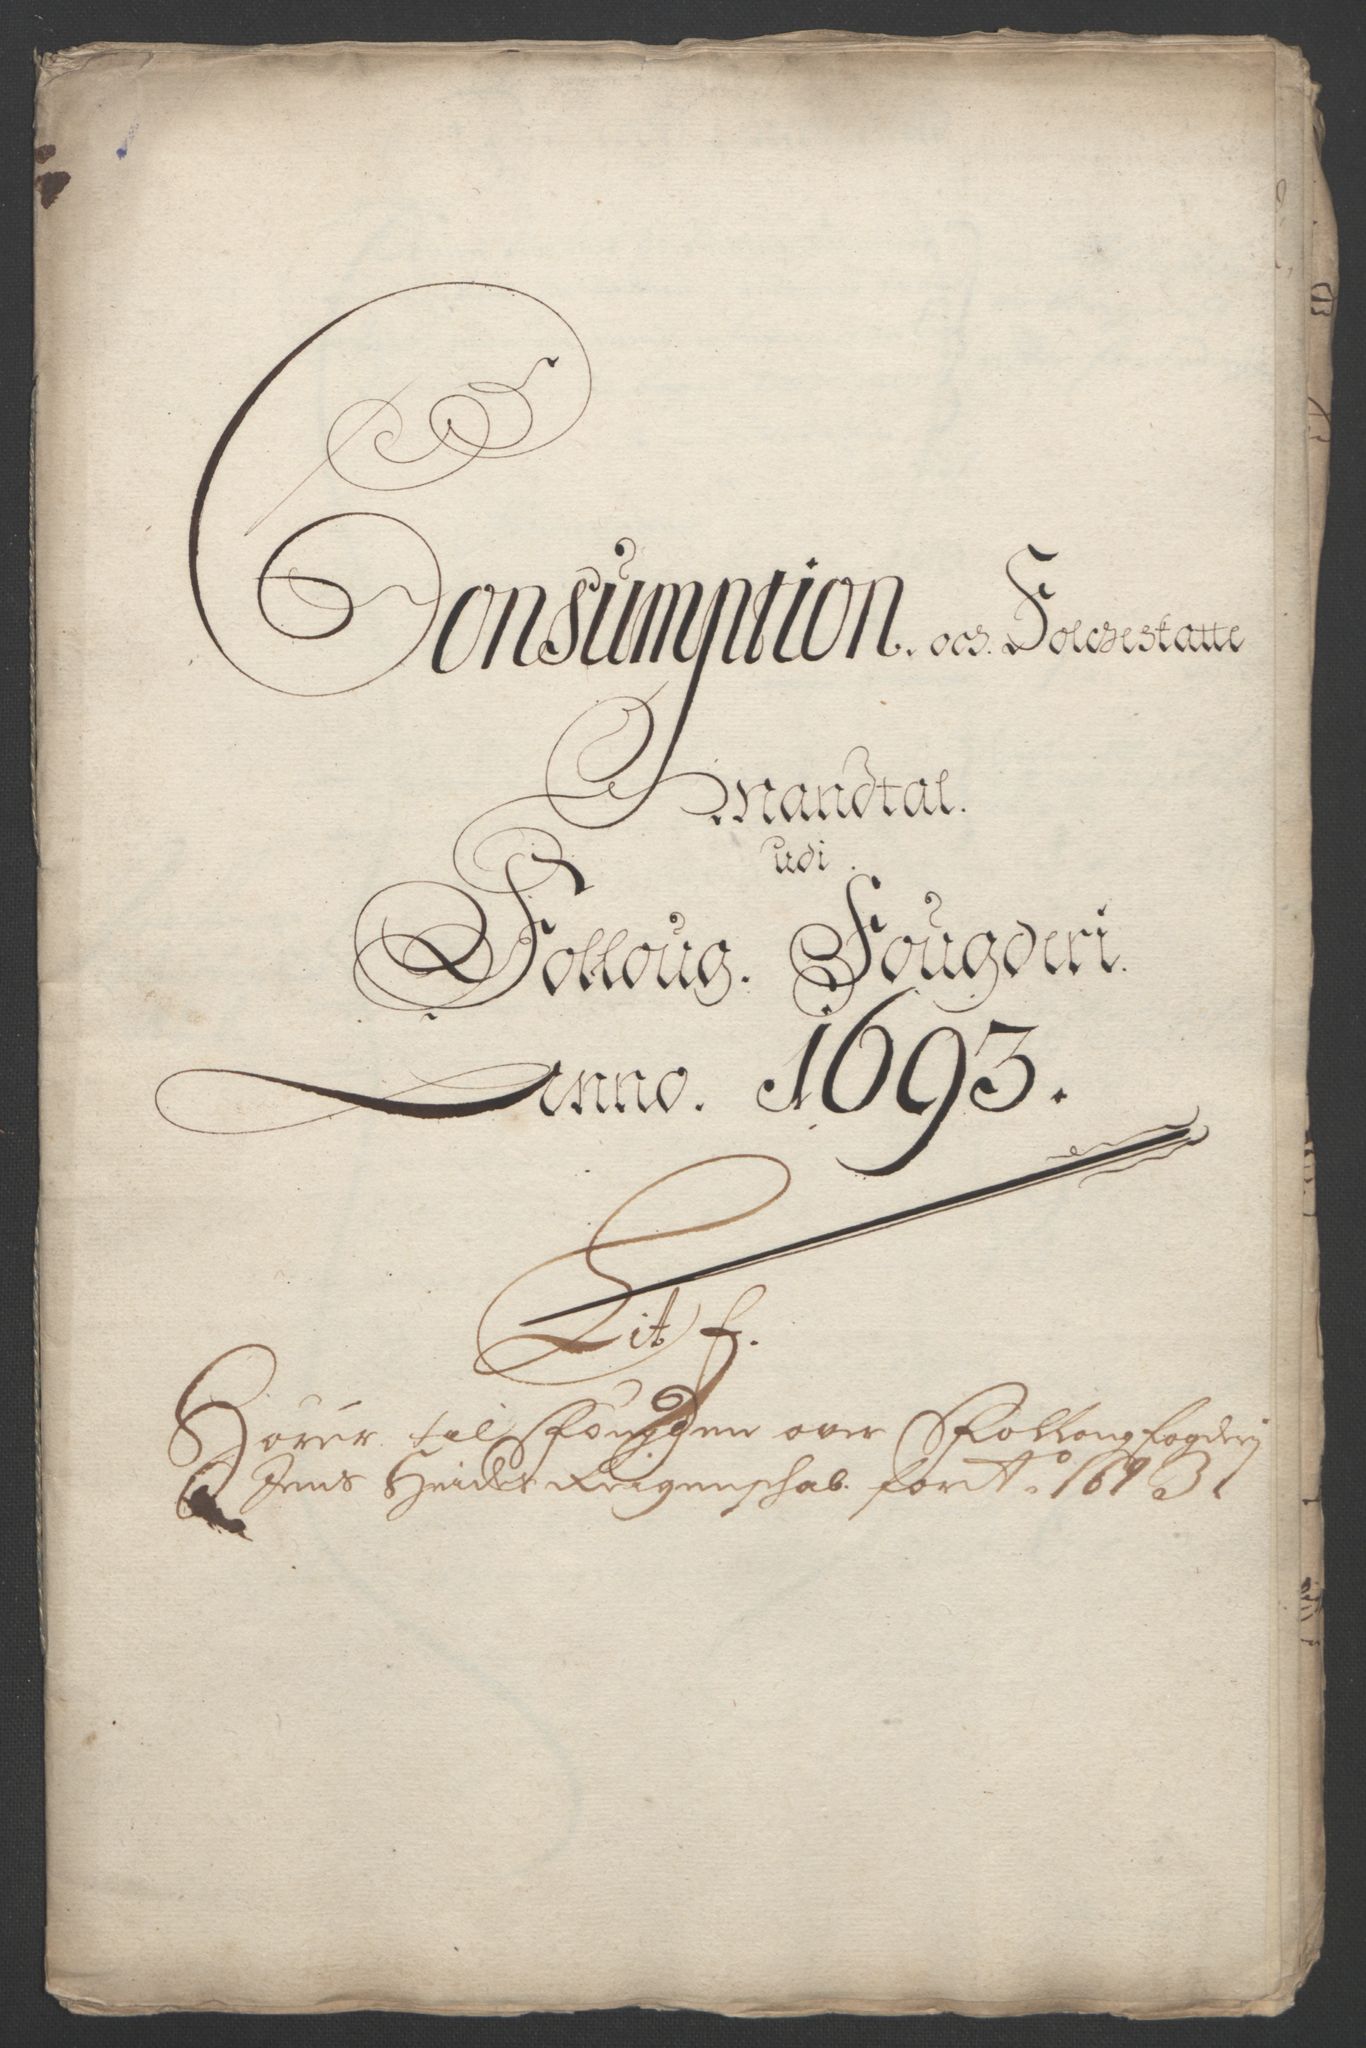 Consumption. och. Folcheskatte
Mandtal.
udi.
Folloug. Fougderi.
Anno. 1693.
Lit f.
Hörer til Fougden over Folloug fogderj
Jens Heides Reigenschab for Ao. 1693